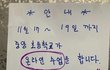 * 안 내 *
11월 17 ~ 19일 까지
초등학교가
온라인 수업을 합니다.